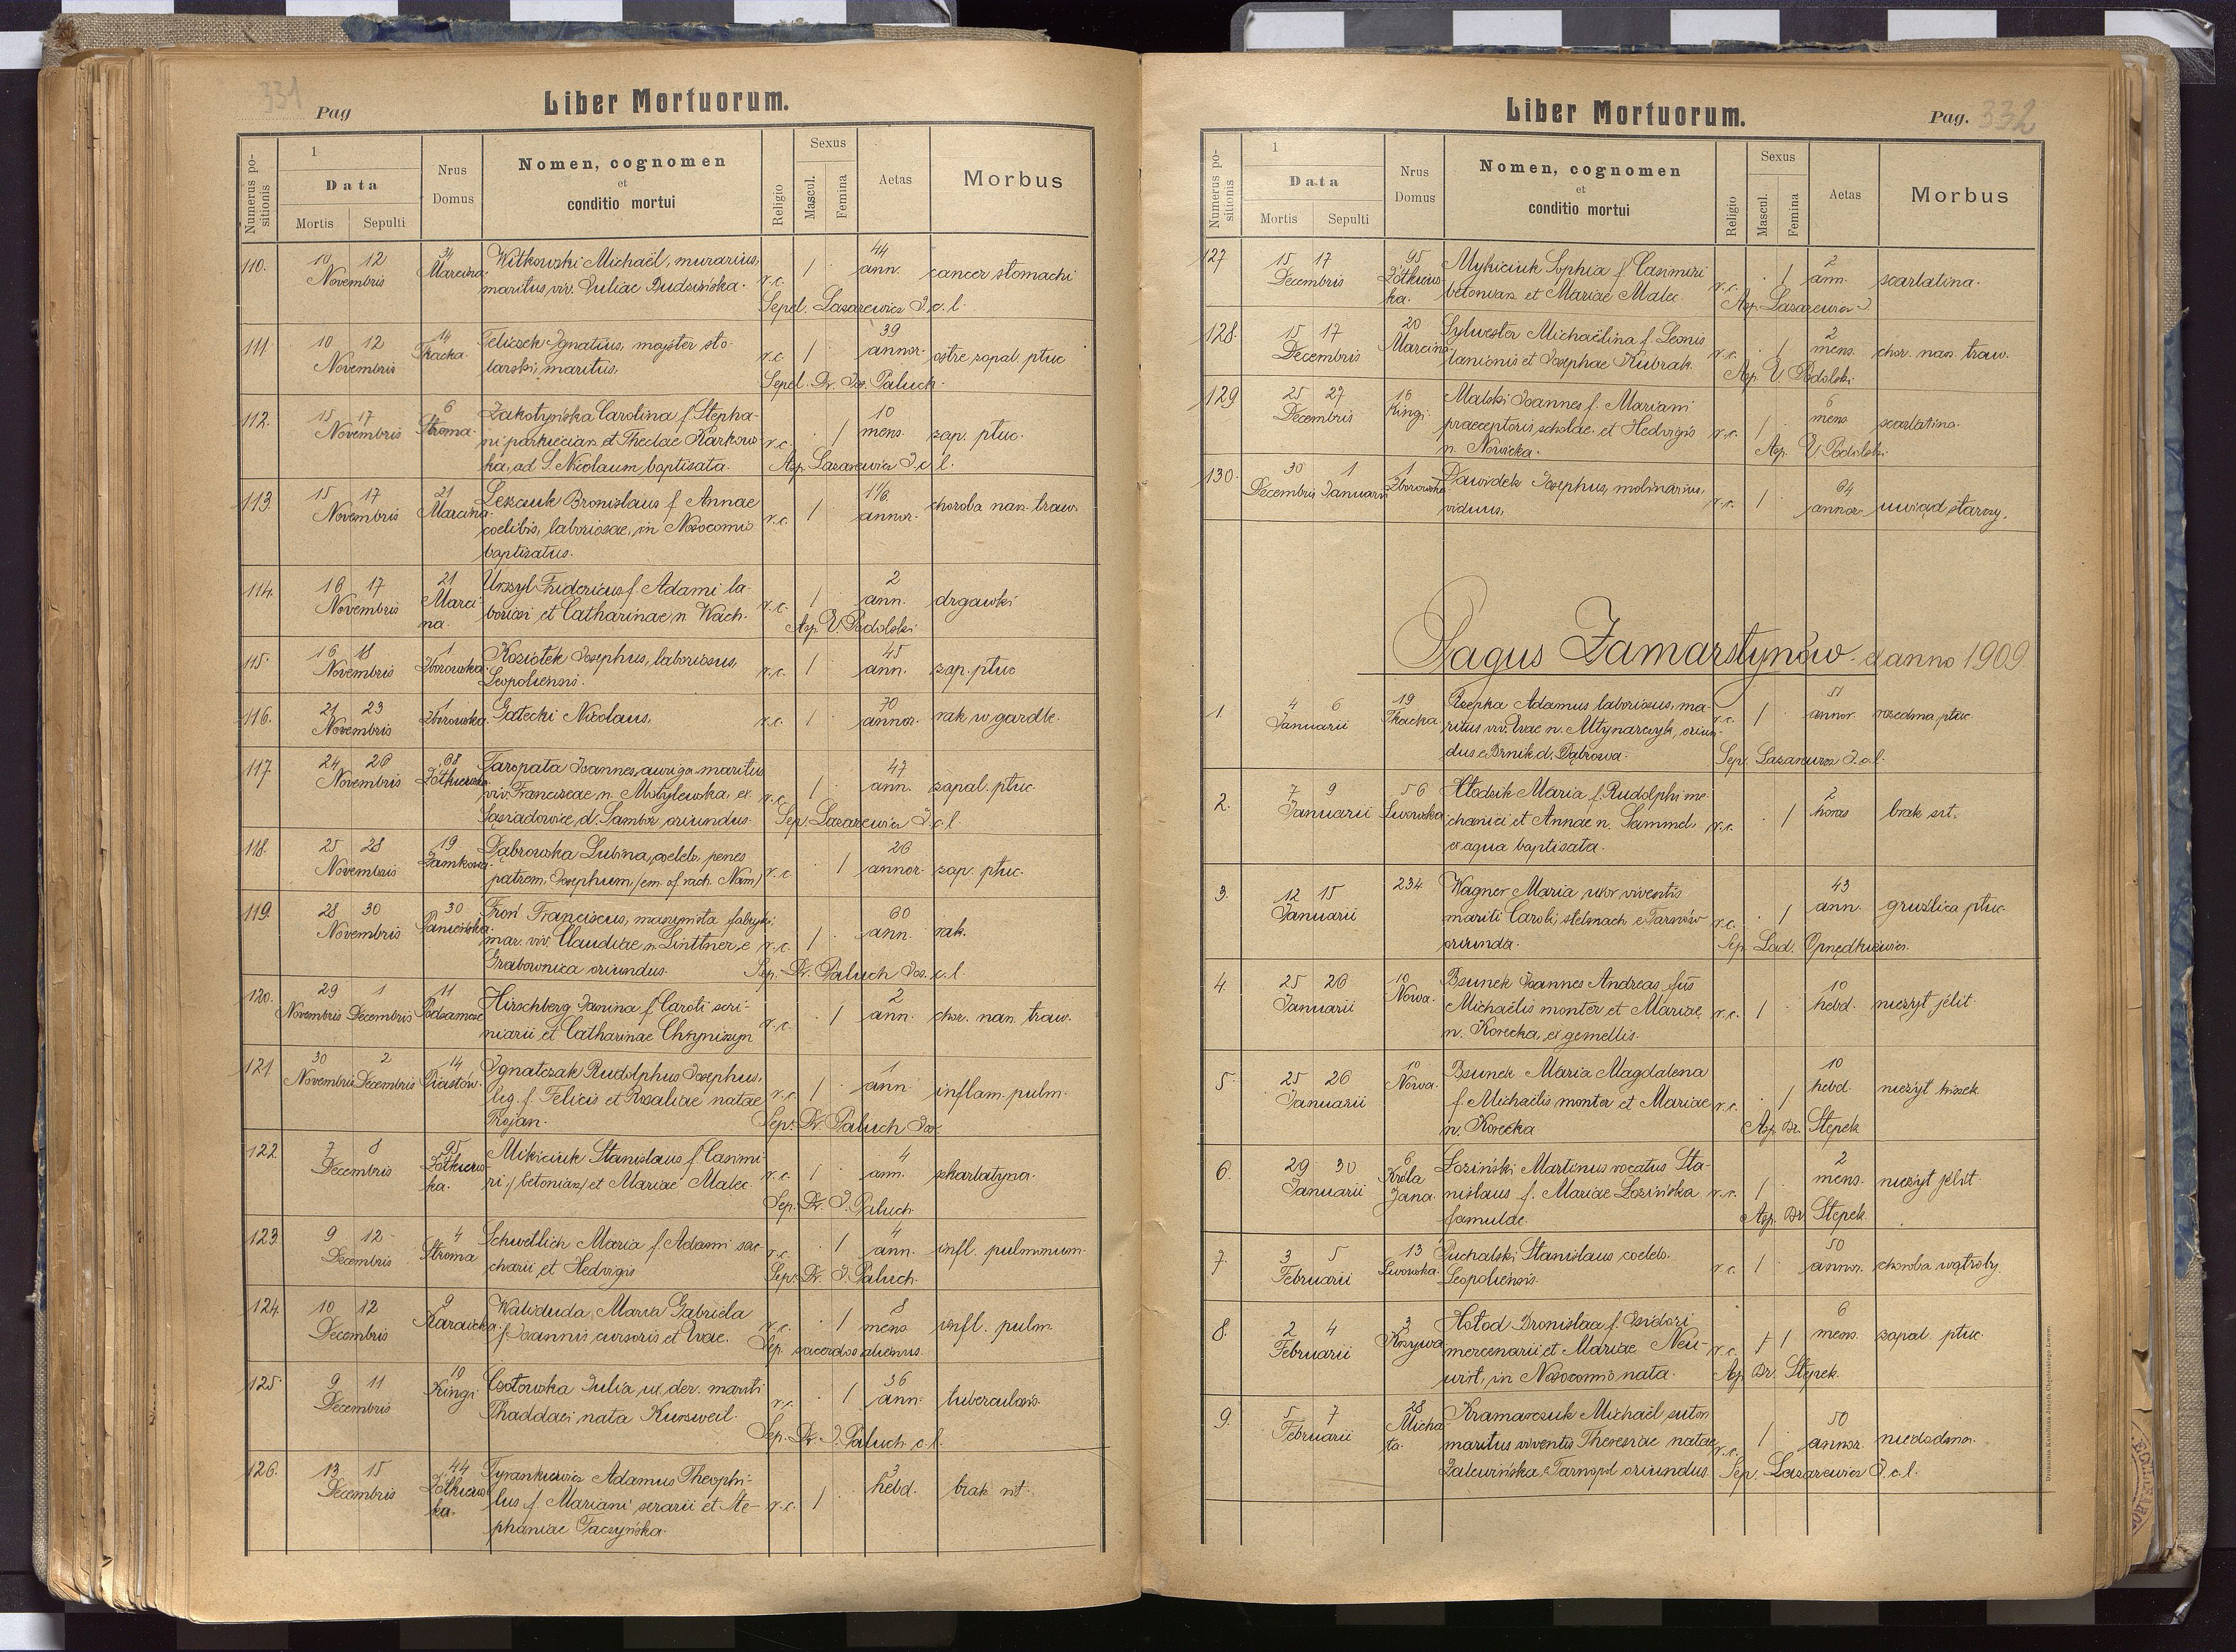 331
Pag
Liber Mortuorum.
Numerus positionis
1
Data
Mortis
Sepulti
Nrus Domus
Nomen, cognomen
et
conditio mortui
Religio
Sexus
Mascul.
Femina
Aetas
Morbus
110. 10 12 Novembris 34 Marcina Witkowski Michaël, murarius, r.c. 1 44 ann. cancer stomachi
maritus viv. Juliae Dudzińska.
Sepel. Lazarewicz J. c. l.
111. 10 12 Novembris 14 Tkacka Ignatius, majster sto- r.c. 1 39 annor. ostre zapal. płuc
larski, maritus,
Sepel. Dr. Jos. Paluch.
112. 15 17 Novembris 6 Stroma Zakotyńska Carolina f. Stepha- r.c. 1 10 mens. zap. płuc.
ni et Theclae Karkows-
ka, ad S. Nicolaum baptisata.
Asp. Lazarewicz J. c. l.
113. 15 17 Novembris 21 Marcina Leszczuk Bronislaus f. Annae r.c. 1 1 1/6 annor. choroba nar. traw.
coelibis, laboriosae, in Nosocomio
baptisatus.
114. 16 17 Novembris 21 Marci-
na. Urszyl Fridericus f. Adami la- r.c. 1 2 ann. drgawki
boriosi et Catharinae n. Wach.
Asp. V. Podolski
115. 16 18 Novembris 1 Zborowska. Koziołek Josephus, laboriosus, r.c. 1 45 ann. zap. płuc
Leopoliensis.
116. 21 23 Novembris 1 Zborowska. Gałecki Nicolaus, r.c. 1 70 annor. rak w gardle.
117 24 26 Novembris 68 Żółkiewska Taropata Joannes, auriga maritus r.c. 1 47 ann. zapal. płuc
viv. Franciscae n. Motylewska, ex
Sąsiadowice d. Sambor oriundus.
Sep. Lazarewicz J. c. l.
118. 25 28 Novembris 19 Zamkowa. Dąbrowska Lubina, coelebs, penes r.c. 1 26 annor. zap. płuc.
patrem, Josephum, /em. of. rach. Nam/
119. 28 30 Novembris 30 Panieńska. Froń Franciscus, maszynista fabryki, r.c. 1 60 ann. rak.
mar. viv. Claudiae n. Linttner, e
Grabownica oriundus.
Sep. Dr. Paluch Jos. c. l.
120. 29 Novembris 1 Decembris 11 Podzamcze Hirschberg Janina f. Caroli scri- r.c. 1 2 ann. chor. nar. traw.
niarii et Catharinae Chryniszyn
121 30 Novembris 2 Decembris 14 Piastów. Ignatczak Rudolphus Josephus, r.c. 1 1 ann. inflam. pulm.
leg. f. Felicis et Rosaliae natae
Trojan.
Sep. Dr. Paluch Jos.
122. 7 8 Decembris 95 Żółkiews-
ka. Mikiciuk Stanislaus f. Casimi- r.c. 1 4 ann. szkarlatyna.
ri /betoniarz/ et Mariae Malec.
Sep. Dr. J. Paluch.
123. 9 12 Decembris 4 Stroma Schwetlich Maria f. Adami sac- r.c. 1 4 ann. infl. pulmonum.
charii et Hedvigis
Sep. Dr. J. Paluch.
124. 10 12 Decembris 9 Karaicka. Waliduda Maria Gabriela r.c. 1 8 mens. infl. pulm.
f. Joannis cursoris et Evae.
Sep. sacerdos alienus.
125. 9 11 Decembris 10 Kingi Czotowska Julia ux. der. mariti r.c. 1 36 ann. tuberculosis.
Thaddaei nata Kurzweil.
Sep. Dr. J. Paluch c. l.
126. 13 15 Decembris 44 Żółkiews-
ka. Tyrankiewicz Adamus Theophi- r.c. 1 3 hebd. brak sił.
lus f. Mariani serarii et Ste-
phaniae Taczyńska.
Liber Mortuorum.
Pag. 332
Numerus positionis
1
Data
Mortis
Sepulti
Nrus Domus
Nomen, cognomen
et
conditio mortui
Religio
Sexus
Mascul.
Femina
Aetas
Morbus
127 15 17 Decembris 95 Żółkiews-
ka. Mykiciuk Sophia f. Casimiri r.c. 1 2 ann. scarlatina.
betoniarz et Mariae Malec.
Asp. Lazarewicz J.
128. 15 17 Decembris 20 Marcina Sylwester Michaëlina f. Leonis r.c. 1 2 mens. chor. nar. traw.
lanionis et Josephae Kubrak.
Asp. V. Podolski
129 25 27 Decembris 16 Kingi. Malski Joannes f. Mariani r.c. 1 6 mens. scarlatina.
praeceptoris scholae et Hedvigis
n. Nowicka.
Asp. V. Podolski
130. 30 Decembris 1 Januarii 1 Zborowska Dawidek Josephus, molinarius, r.c. 1 64 annor. uwiąd starczy.
viduus,
Pagus Zamarstynów d anno 1909
1. 4 6 Januarii 19 Tkacka Rzepka Adamus laboriosus, ma- r.c. 1 51 annor. rozedma płuc
ritus viv. Evae n. Młynarczyk, oriun-
dus e Brnik d. Dąbrowa.
Sep. Lazarewicz J. c. l.
2. 7 9 Januarii 56 Lwowska Hłodzik Maria f. Rudolphi me- r.c. 1 2 horas brak sił.
chanici et Annae n. Sammel,
ex aqua baptisata.
3. 12 15 Januarii 234 Wagner Maria uxor viventis r.c. 1 43 ann. gruźlica płuc
mariti Caroli, stelmach e Tarnów
oriunda.
Sep. Lad. Opnędkiewicz.
4. 25 26 Januarii 10 Nowa. Bzunek Joannes Andreas, fus r.c. 1 10 hebd. nieżyt jelit
Michaëlis monter et Mariae
n. Korecka, ex gemellis.
5. 25 26 Januarii 10 Nowa. Bzunek Maria Magdalena r.c. 1 10 hebd. nieżyt kiszek
f. Michaëlis monter et Mariae
n. Korecka
Asp. Dr. Stepek
6. 29 30 Januarii 6 Króla
Jana. Łoziński Martinus vocatus Sta- r.c. 1 2 mens. nieżyt jelit
nislaus f. Mariae Łozińska
famulae.
Asp. Dr. Stepek
7. 3 5 Februarii 13 Lwowska. Puchalski Stanislaus coelebs. r.c. 1 50 annor. choroba wątroby
Leopoliensis.
8. 2 4 Februarii 3 Krzywa Hołod Bronislaa f. Isidori r.c. 1 6 mens. zapal. płuc.
mercenarii et Mariae Neu-
wirt, in Nosocomio nata.
Asp. Dr. Stepek.
9. 5 7 Februarii 28 Micha-
ła. Kramarczuk Michaël sutor r.c. 1 50 annor. niedodma.
maritus viventis Theresiae natae
Zalewińska, e Tarnopol oriundus.
Sep. Lazarewicz J. c. l.